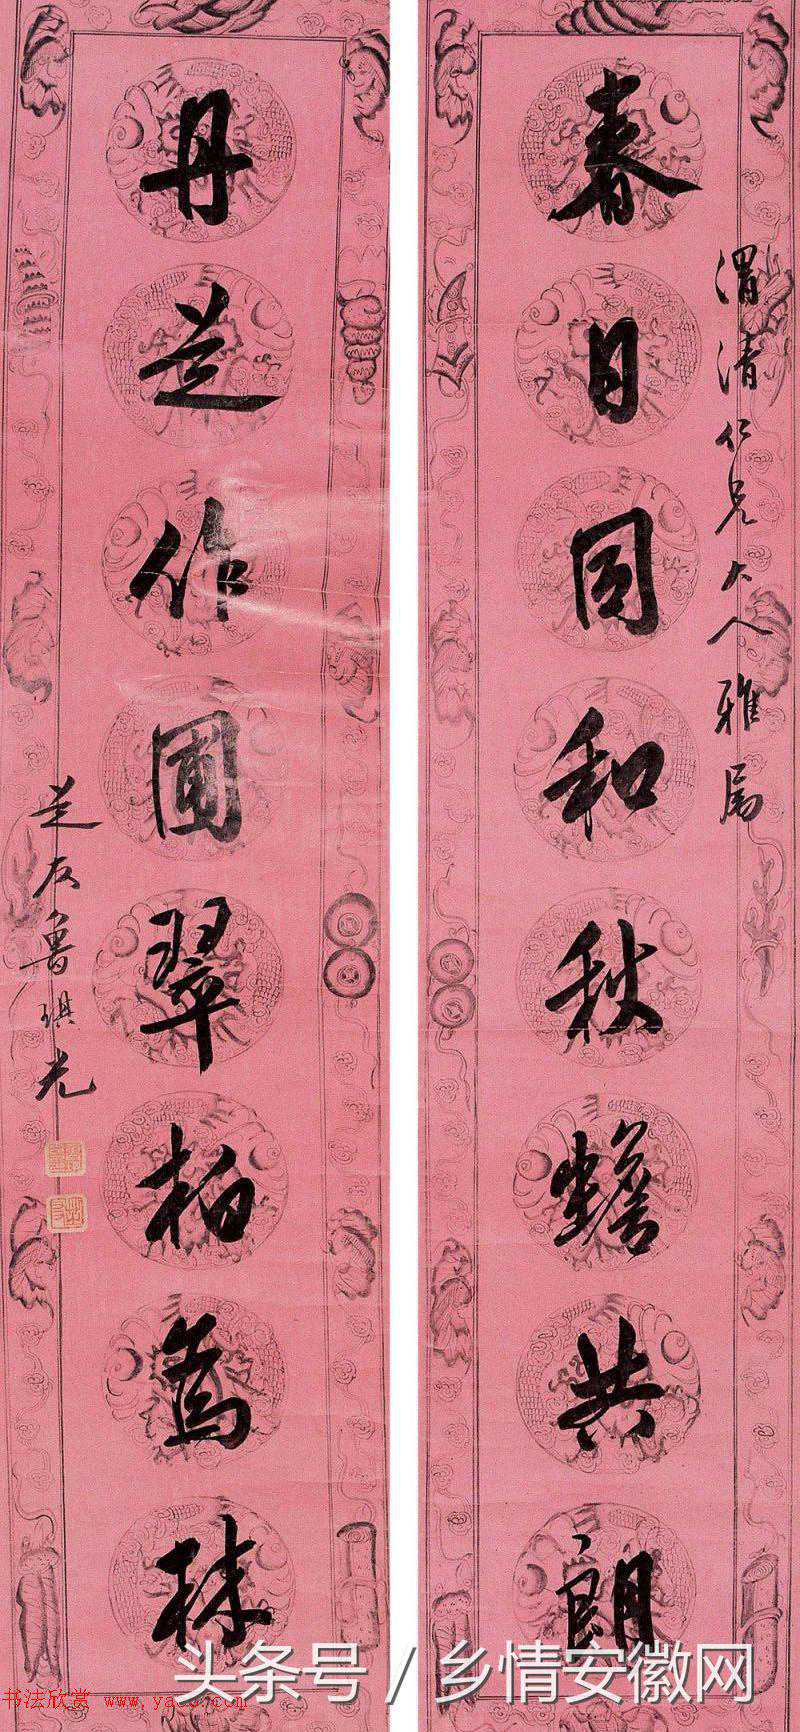 渭清仁兄大人雅属
春日同和秋蟾共朗
丹芝作圃翠柏為林
芝友魯琪光
头条号 / 乡情安徽网
书法欣赏 www.yac8.com